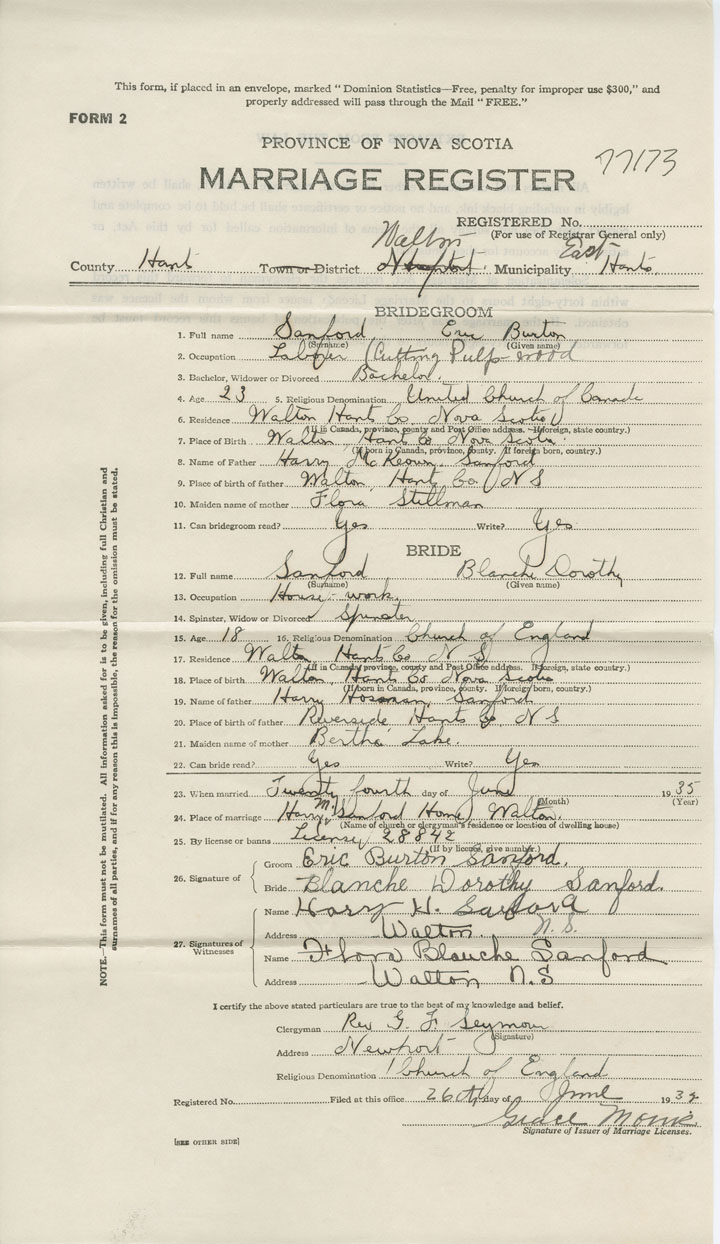 This form, if placed in an envelope, marked "Dominion Statistics—Free, penalty for improper use $300," and
properly addressed will pass through the Mail "FREE."
FORM 2
PROVINCE OF NOVA SCOTIA
77173
MARRIAGE REGISTER
REGISTERED No.
(For use of Registrar General only)
Walton East
County Hants Town or District Newport Municipality Hants
BRIDEGROOM
1. Full name Sanford Eric Burton
(Surname) (Given name)
2. Occupation Laborer (Cutting Pulp wood
3. Bachelor, Widower or Divorced Bachelor
4. Age 23 5. Religious Denomination United Church of Canada
6. Residence Walton Hants Co Nova Scotia
(If in Canada, province, county and Post Office address. If foreign, state country.)
7. Place of Birth Walton Hants Co Nova Scotia
(If born in Canada, province, county. If foreign born, country.)
8. Name of Father Harry McKeown Sanford
9. Place of birth of father Walton Hants Co N S
10. Maiden name of mother Flora Stillman
11. Can bridegroom read? Yes Write? Yes
BRIDE
12. Full name Sanford Blanche Dorothy
(Surname) (Given name)
13. Occupation House-work
14. Spinster, Widow or Divorced Spinster
15. Age 18 16. Religious Denomination Church of England
17. Residence Walton Hants Co N S
(If in Canada, province, county and Post Office address. If foreign, state country.)
18. Place of birth Walton, Hants Co Nova Scotia
(If born in Canada, province, county. If foreign born, country.)
19. Name of father Harry Sanford
20. Place of birth of father Riverside Hants Co N S
21. Maiden name of mother Bertha Lake.
22. Can bride read? Yes Write? Yes
23. When married Twenty fourth day of June 1935
(Month) (Year)
24. Place of marriage Harry Mc Sanford Home, Walton.
(Name of church or clergyman's residence or location of dwelling house)
25. By license or banns License, 28842
(If by license, give number.)
26. Signature of
Groom Eric Burton Sanford.
Bride Blanche Dorothy Sanford.
27. Signatures of Witnesses
Name Harry H. Sanford
Address Walton. N.S.
Name Flora Blanche Sanford
Address Walton N.S
I certify the above stated particulars are true to the best of my knowledge and belief.
Clergyman Rev G. F Seymour
(Signature)
Address Newport
Religious Denomination Church of England
Registered No. Filed at this office 26th day of June 193
Grace
Signature of Issuer of Marriage Licenses.
[SEE OTHER SIDE]
NOTE.—This form must not be mutilated. All information asked for is to be given, including full Christian and
surnames of all parties, and if for any reason this is impossible, the reason for the omission must be stated.